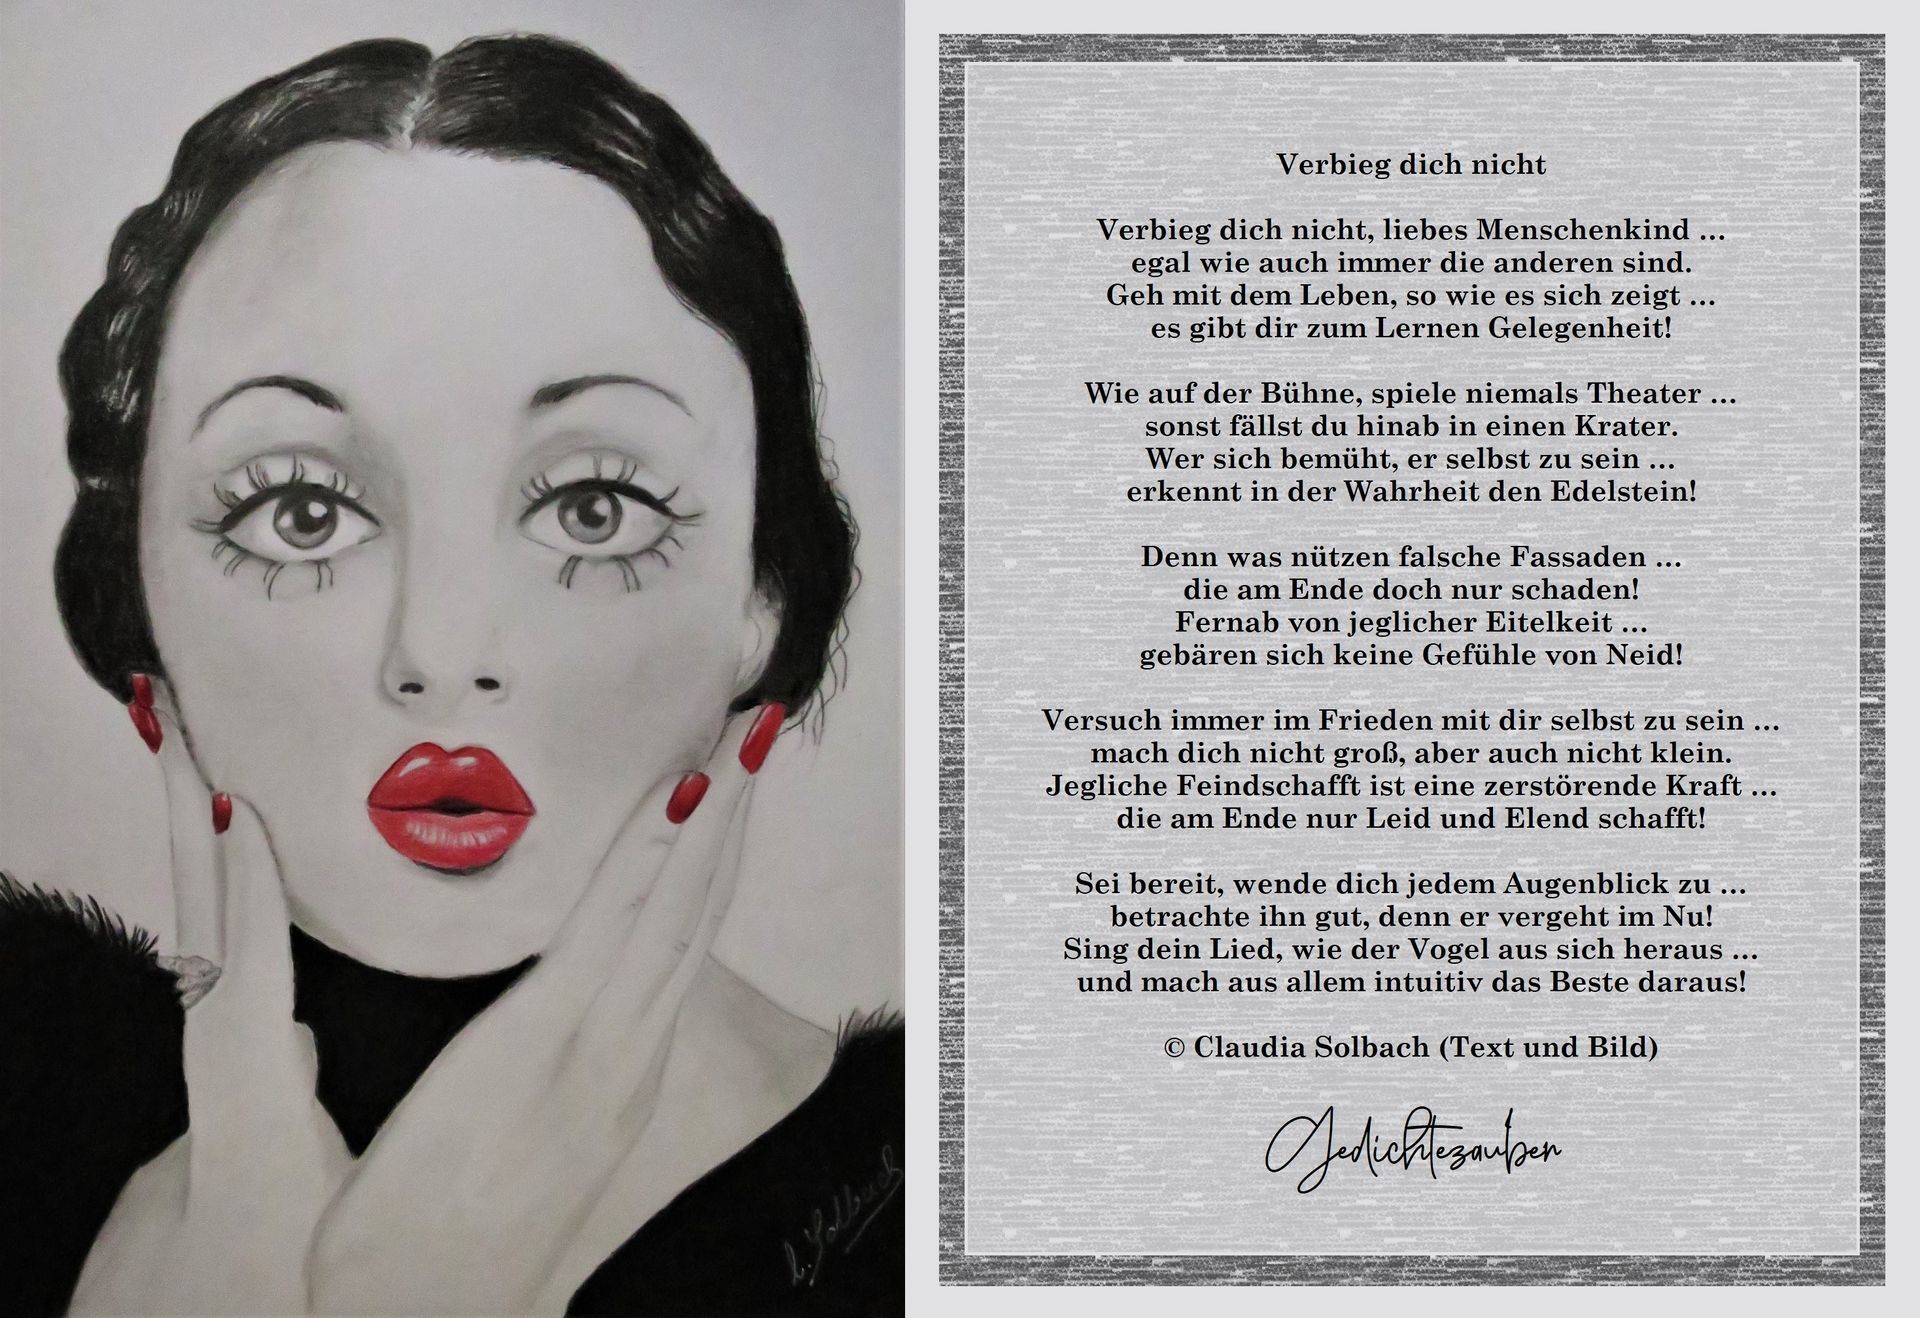 Verbieg dich nicht
Verbieg dich nicht, liebes Menschenkind ...
egal wie auch immer die anderen sind.
Geh mit dem Leben, so wie es sich zeigt ...
es gibt dir zum Lernen Gelegenheit!
Wie auf der Bühne, spiele niemals Theater ...
sonst fällst du hinab in einen Krater.
Wer sich bemüht, er selbst zu sein ...
erkennt in der Wahrheit den Edelstein!
Denn was nützen falsche Fassaden ...
die am Ende doch nur schaden!
Fernab von jeglicher Eitelkeit ...
gebären sich keine Gefühle von Neid!
Versuch immer im Frieden mit dir selbst zu sein ...
mach dich nicht groß, aber auch nicht klein.
Jegliche Feindschafft ist eine zerstörende Kraft ...
die am Ende nur Leid und Elend schafft!
Sei bereit, wende dich jedem Augenblick zu ...
betrachte ihn gut, denn er vergeht im Nu!
Sing dein Lied, wie der Vogel aus sich heraus ...
und mach aus allem intuitiv das Beste daraus!
© Claudia Solbach (Text und Bild)
Gedichtezauber
C. Solbach